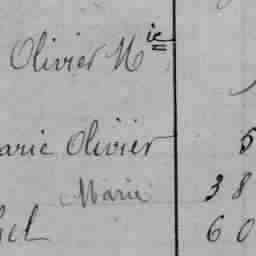 Olivier Mie
arie Olivier 5
Marie 38
60